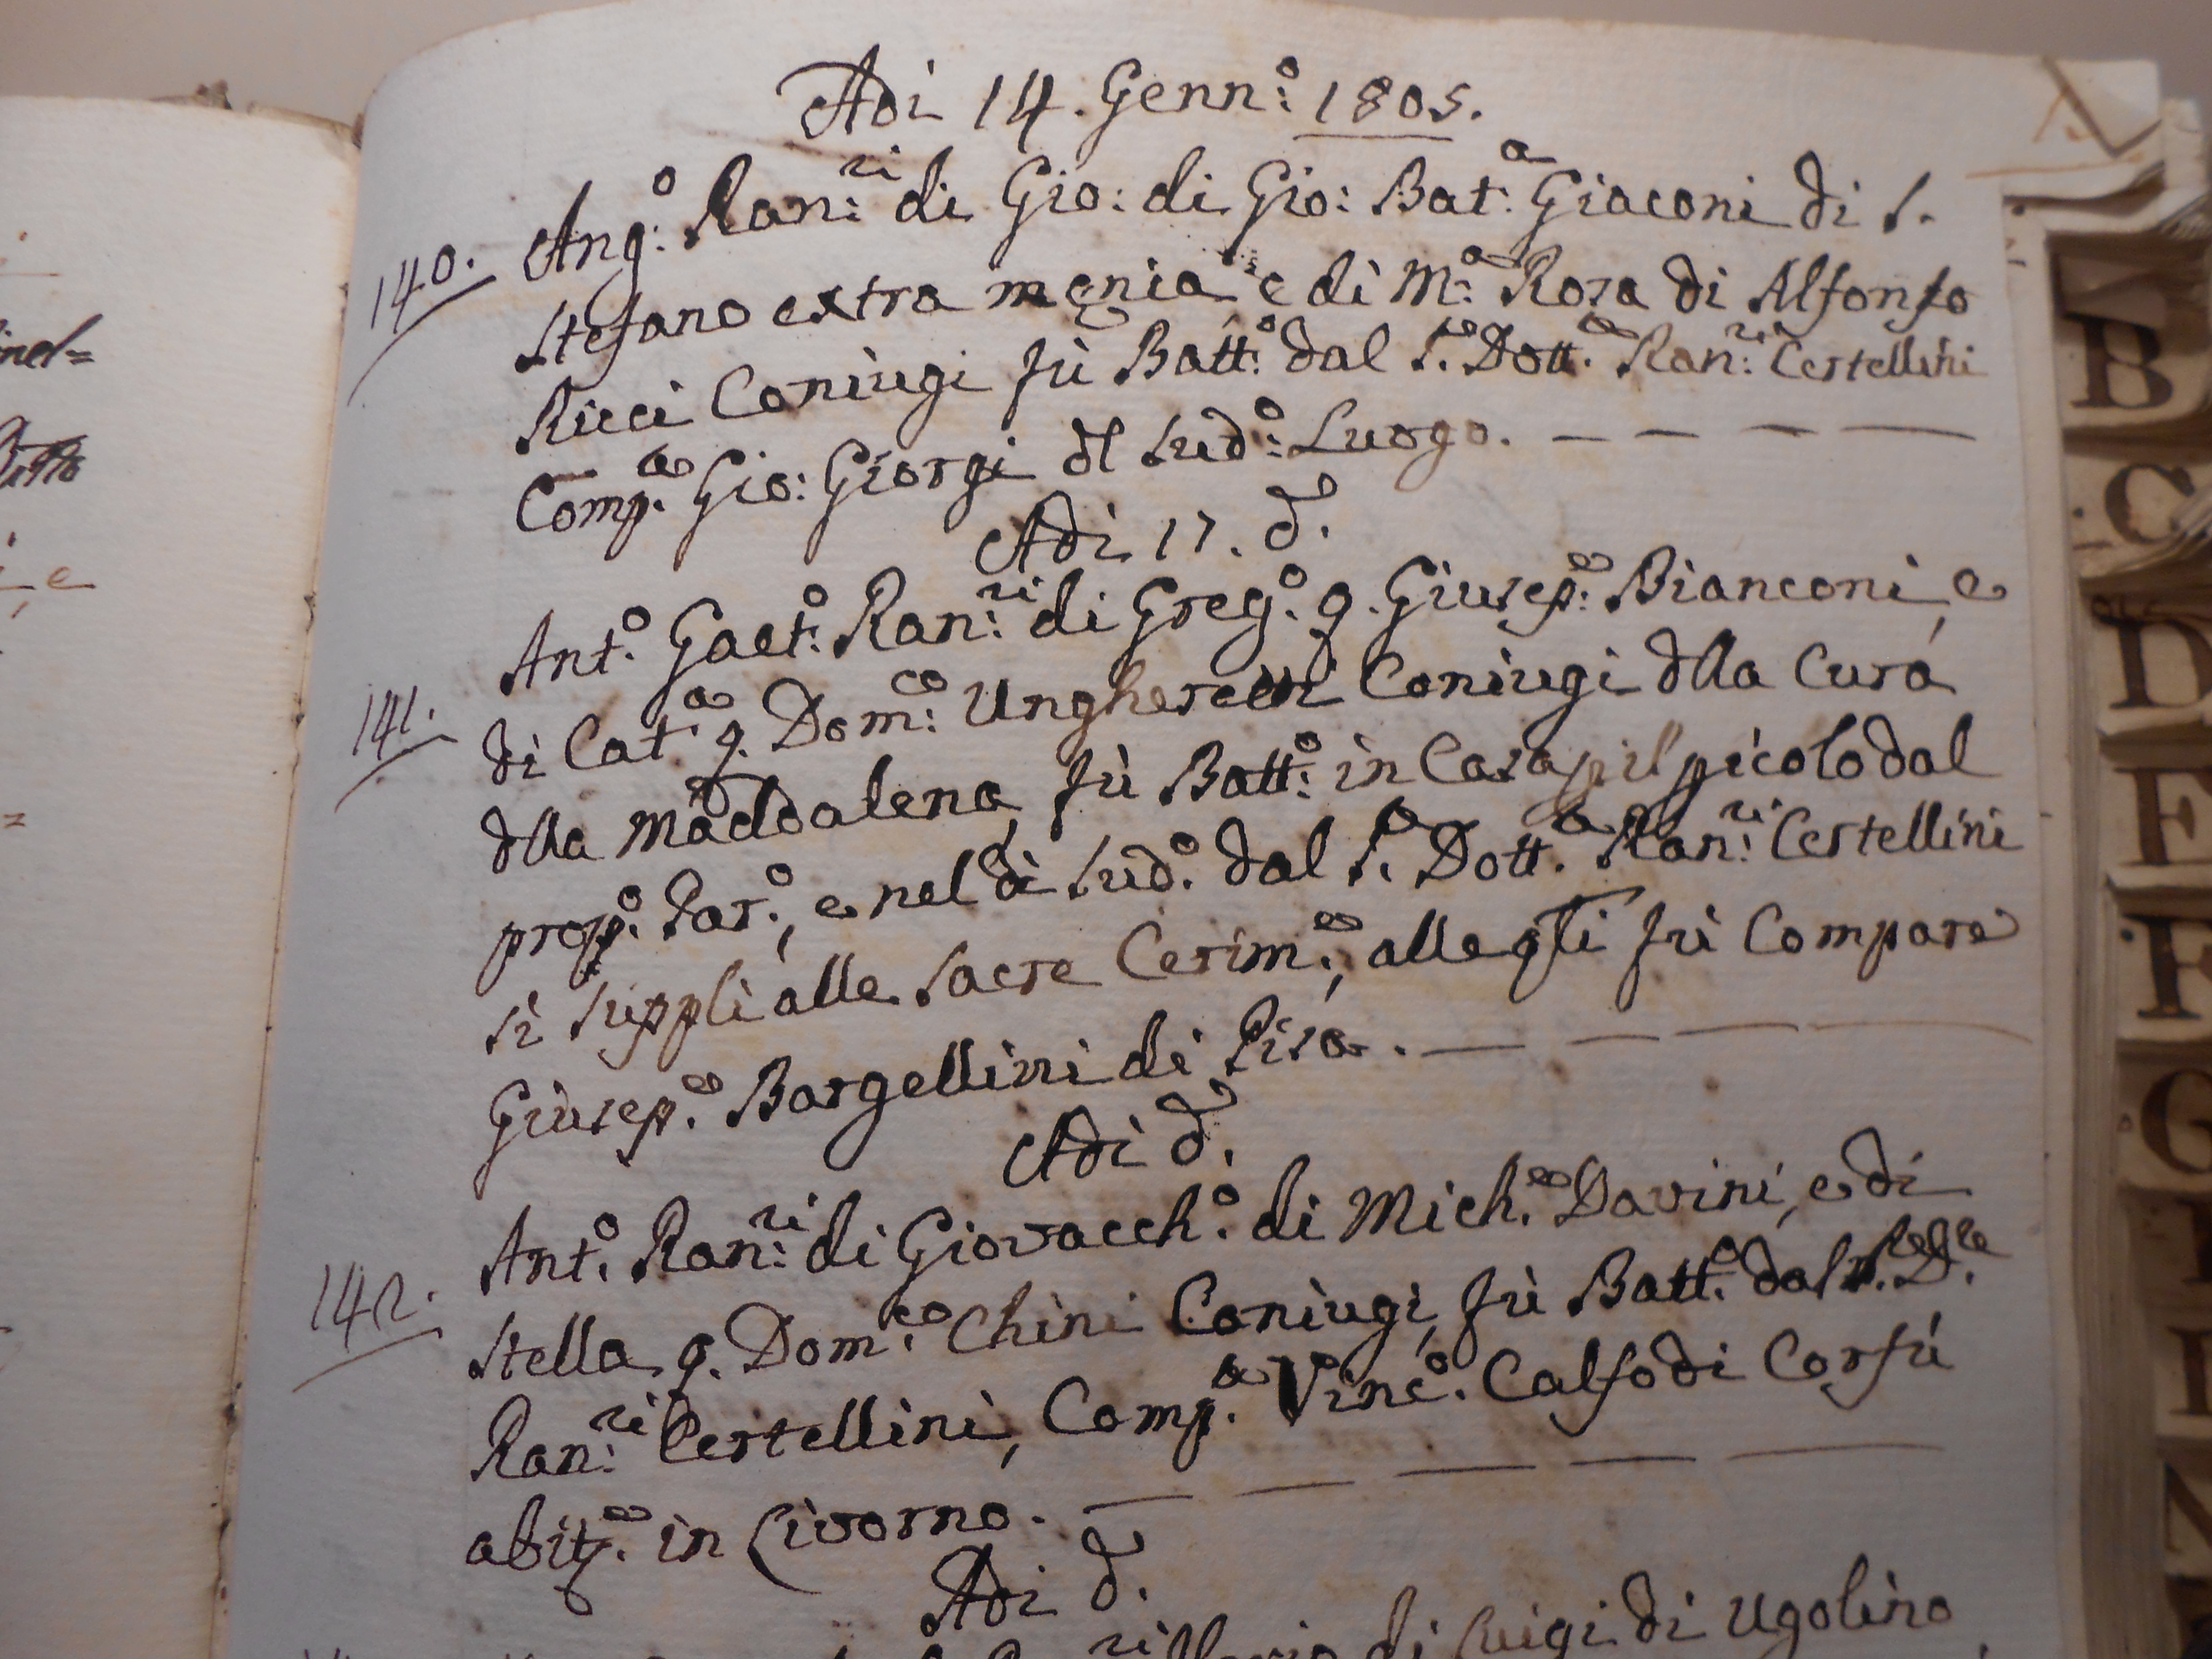 Adì 14. Genn:o 1805.
140. Ang:o Ran:ri di Gio: di Gio: Bat:a Giaconi di S.
Stefano extra menia e di M:a Rosa di Alfonso
Ricci Coniugi fù Batt:o dal S.re Dott.e Ran:ri Certellini
Comp.e Gio: Giorgi dl sud:o Luogo. — — — —
Adì 17. d.o
141. Ant.o Gaet:o Ran:ri di Greg:o q. Giusep:e Bianconi, e
di Cat.a q. Dom:co Ungheretti Coniugi dlla Cura
dlla Maddalena, fù Batt:o in Casa p il picolo dal
prop.o Par.o, e nel dì sud.o dal S.e Dott.e Ran:ri Certellini
si supplì alle sacre Cerim.e, alle qli fù Compare
Giusep.e Bargellini di Pisa. — — — —
Adì d.o
142. Ant.o Ran:ri di Giovacch.o di Mich.e Davini, e di
Stella q. Dom.co Chini Coniugi, fù Batt.o dal
Ran:ri Certellini, Comp.e Vinc.o Calfo di Corfù
abit.e in Livorno. — — — — —
Adì d.o
di Luigi di Ugolino
B
C
D
E
F
G